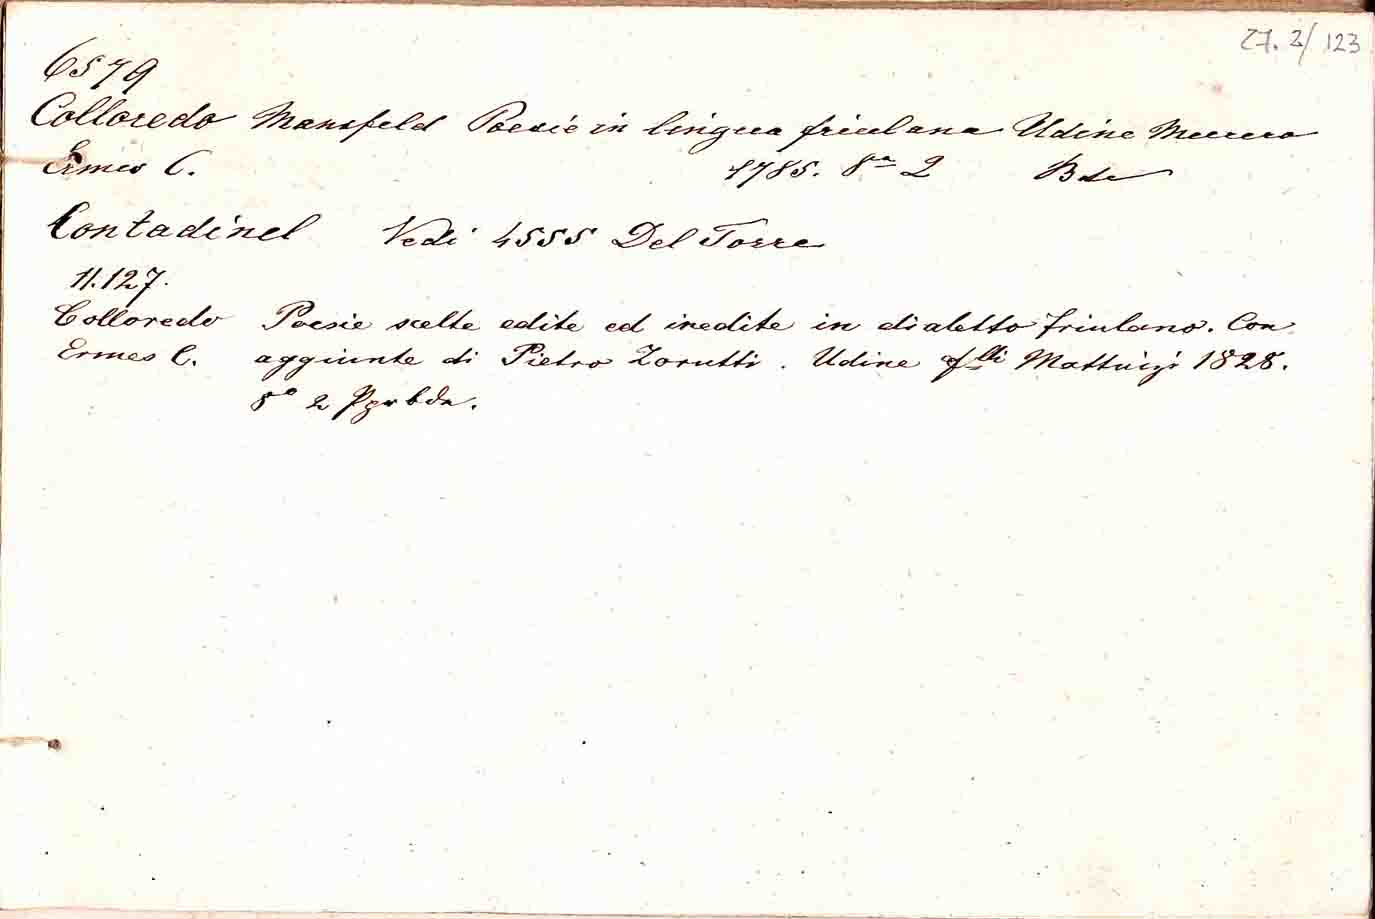 27. 2/123
6579
Colloredo Mansfeld Poesie in lingua friulana Udine Murero
Ermes C. 1785. 8ᵃ 2 Bde
Contadinel Vedi 4555 Del Torre
11.127.
Colloredo Poesie scelte edite ed inedite in dialetto friulano. Con
Ermes C. aggiunte di Pietro Zorutti. Udine flli Mattiuzzi 1828.
8° 2 Pprbde.